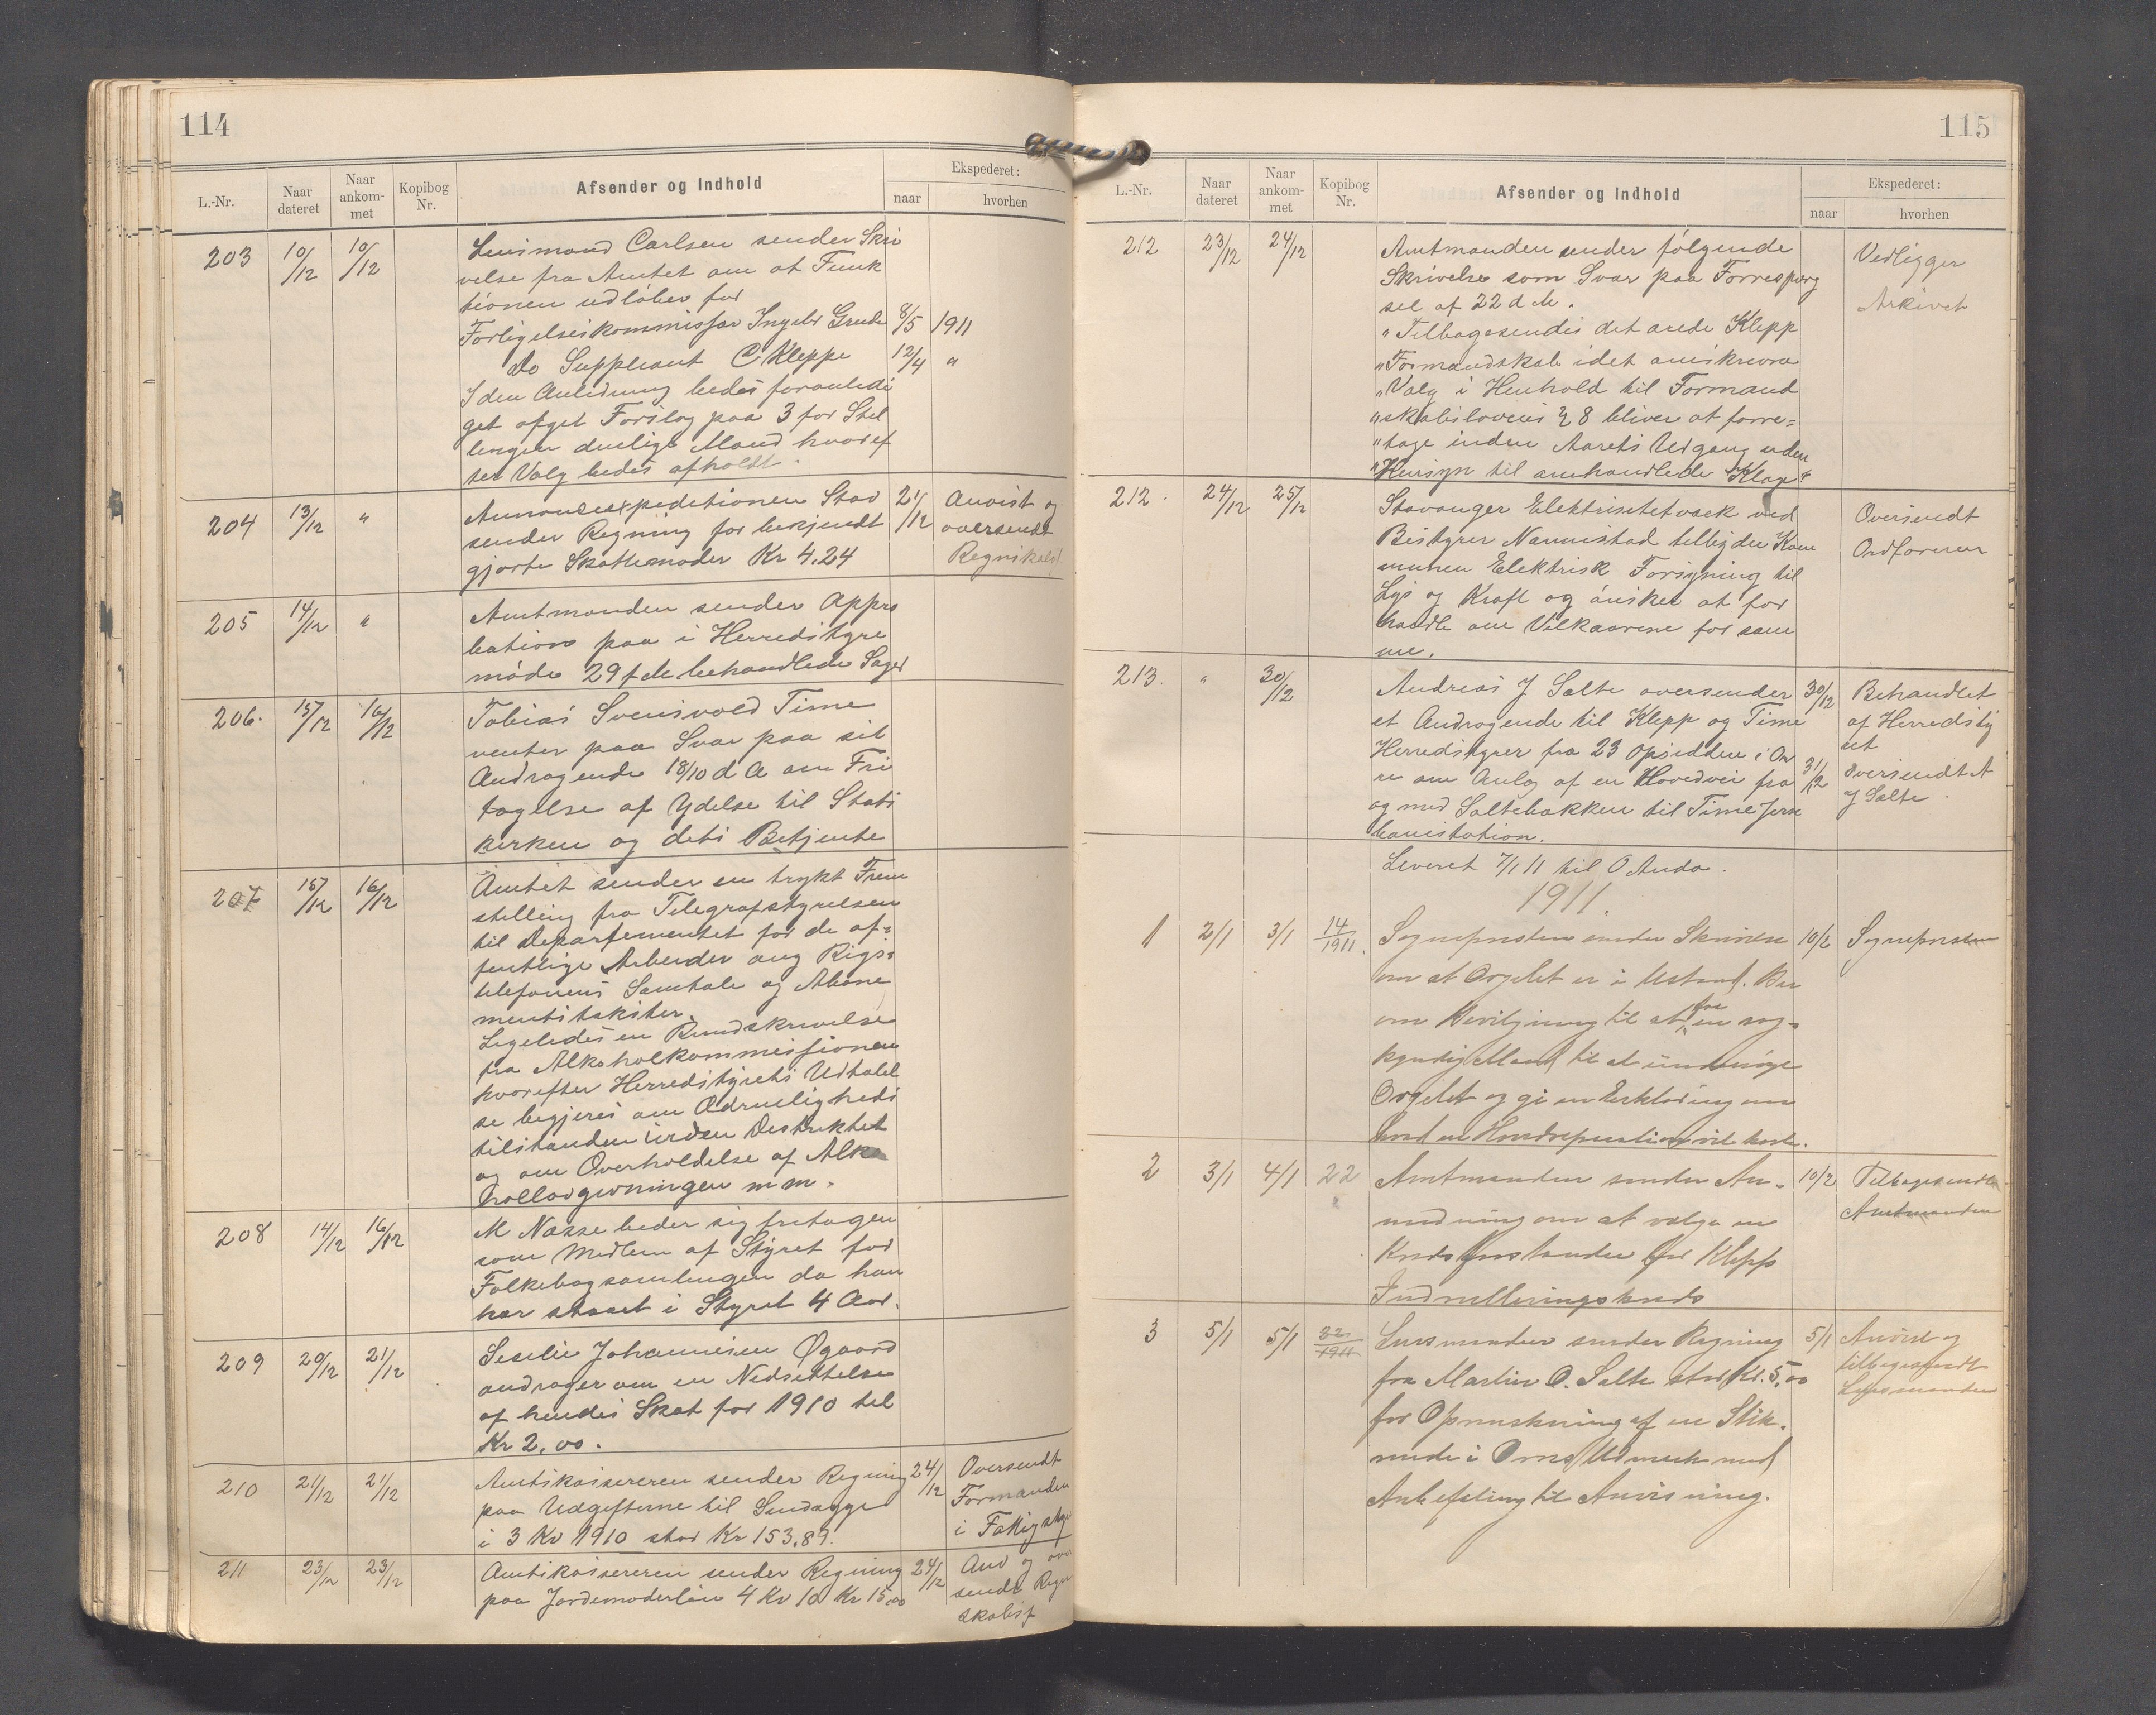 114
L.-Nr. Naar dateret Naar ankom-met Kopibog Nr. Afsender og Indhold Ekspederet: naar hvorhen
203 10/12 10/12 Lensmand Carlsen sender Skri
velse fra Amtet om at Funk
tionen udløber for
Forligelseskommissær Ingebr Grude 8/5 1911
Do Suppleant C Kleppe 12/4 "
I den Anledning bedes foranledi
get afget Forslag paa 3 for Stel
lingen duelige Mænd hvoref
ter Valg bedes afholdt.
204 13/12 " Annonceexpeditionen Stav 21/12 Anvist og
sender Regning for bekjendt oversendt
gjorte Skattemøder Kr 4.24 Regnskabsf.
205 14/12 " Amtmanden sender Appro
bation paa i Herredstyre
møde 29 f de behandlede Sager
206. 15/12 16/12 Tobias Svensvold Time
venter paa Svar paa sit
Andragende 18/10 d A om Fri
tagelse af Ydelse til Stats
kirken og dets Betjente
207 15/12 16/12 Amtet sender en trykt Frem
stilling fra Telegrafstyrelsen
til Departementet for de of=
fentlige Arbeider ang Rigs=
telefonens Samtale og Abone
mentstakster.
Ligeledes en Rundskrivelse
fra Alkoholkommissionen
hvorefter Herredstyrets Udtalel
se begjeres om Ædrueligheds
tilstanden inden Distriktet
og om Overholdelse af Alko
hollovgivningen m m.
208 14/12 16/12 M Næsse beder sig fritagen
som Medlem af Styret for
Folkebogsamlingen da han
har staaet i Styret 4 Aar.
209 20/12 21/12 Seselie Johannesen Øgaard
andrager om en Nedsettelse
af hendes Skat for 1910 til
Kr 2,00.
210 21/12 21/12 Amtskassereren sender Regning 24/12 Oversendt
paa Udgifterne til Sindsyge Formanden
i 3 Kv 1910 stor Kr 153.89. i Fattigsty
211 23/12 23/12 Amtskassereren sender Regning 24/12 Anv og over
paa Jordemoderløn 4 Kv 10 Kr 15,00 sendt Regn
skabsf
115
L.-Nr. Naar dateret Naar ankom-met Kopibog Nr. Afsender og Indhold Ekspederet: naar hvorhen
212 23/12 24/12 Amtmanden sender følgende Vedligger
Skrivelse som Svar paa Forrespørg Arkivet
sel af 22 d M.
" Tilbagesendes det ærede Klepp
" Formandskab idet omskrevne
" Valg i Henhold til Formand
" skabslovens § 8 bliver at forre=
" tage inden Aarets Udgang uden
" Hensyn til omhandlede Klage "
212. 24/12 25/12 Stavanger Elektrisitetværk ved Oversendt
Bestyrer Nannestad tilbyder Kom Ordføreren
munen Elektrisk Forsyning til
Lys og Kraft og ønsker at for
handle om Vilkaarene for sam
me.
213. " 30/12 Andreas J Salte oversender 30/12 Behandlet
et Andragende til Klepp og Time af Herredsty
Herredstyrer fra 23 Opsiddere i Or ret
re om Anlæg af en Hovedvei fra 31/12 Oversendt A
og med Saltebakken til Time Jern J Salte.
banestation.
Leveret 7/1 11 til O Anda.
1911.
1 2/1 3/1 14/1911. Sognepresten sender Skrivelse 10/2 Sognepresten
om at Orgelet er i Ustand. Ber
om Bevilgning til at faa en sag-
kyndig Mand til at undersøge
Orgelet og gi en Erklæring om
hvad en Hovedreparation vil koste.
2 3/1 4/1 22 Amtmanden sender An- 10/2 Tilbagesendt
modning om at vælge en Amtmanden
Kredsforstander for Klepp
Indrulleringskreds
3 5/1 5/1 32/1911 Lensmanden sender Regning 5/1 Anvist og
fra Martin O. Salte stor Kr. 5,00 tilbagesendt
for Oprenskning af en Stik- Lensmanden
rende i Orres Udmark med
Anbefaling til Anvisning.